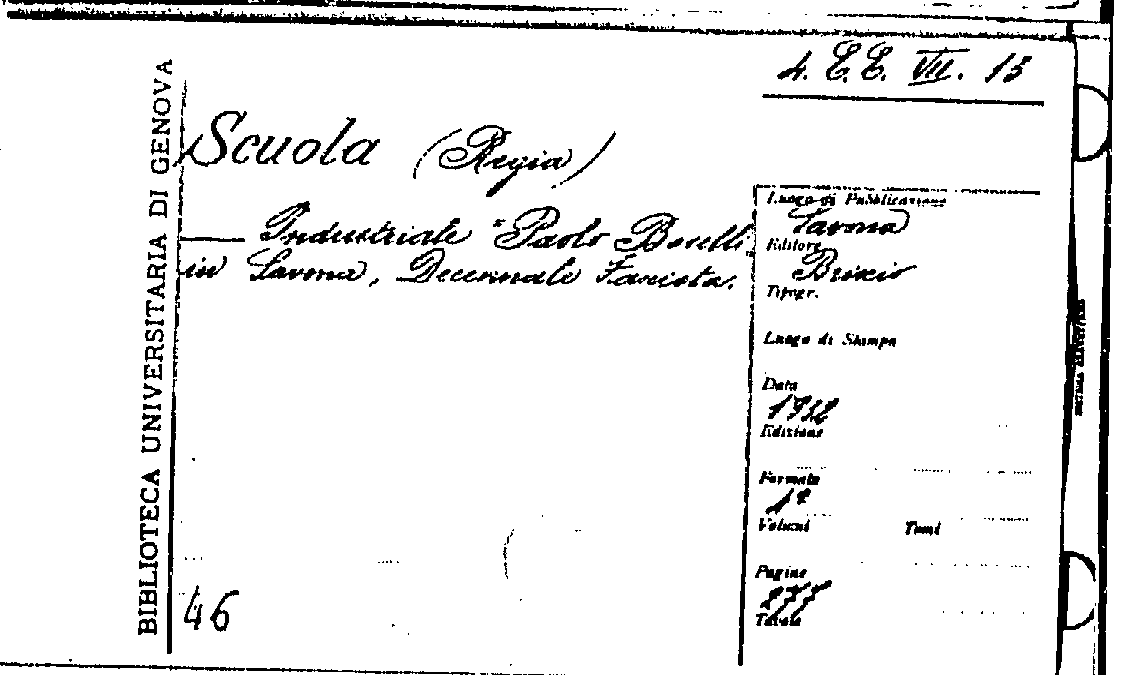 4. E.E. VIII. 15
BIBLIOTECA UNIVERSITARIA DI GENOVA
Scuola (Regia)
Industriale "Paolo Boselli
in Savona, Decennale Fascista.
Luogo di Pubblicazione
Savona
Editore
Brizio
Tipogr.
Luogo di Stampa
Data
1932
Edizione
Formato
Volumi Tomi
Pagine
277
Tavole
46